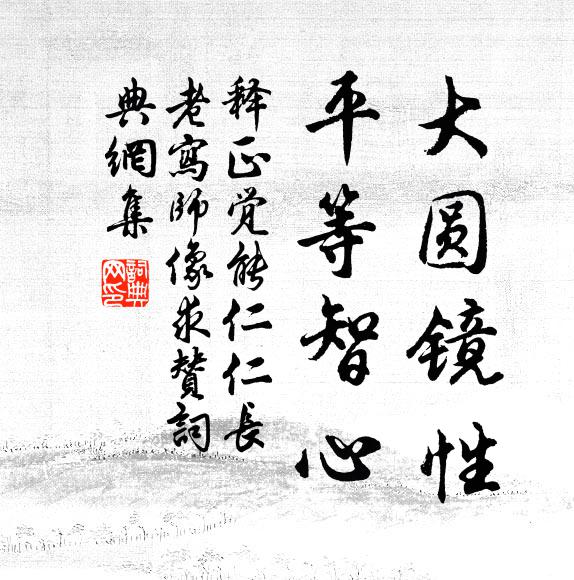 大圆镜性
平等智心
释正觉能仁仁长
老写师像求赞词
典網集
詞典網印